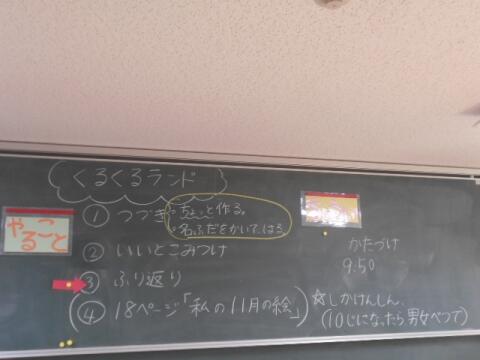 くるくるランド
やる
こと
① つづき
・ちょっと作る。
・名ふだをかいて、はる
② いいとこみつけ
③ ふり返り
(④ 18ページ「私の11月の絵」)
かたづけ
9:50
☆しかけんしん
(10じになったら男女べつで)